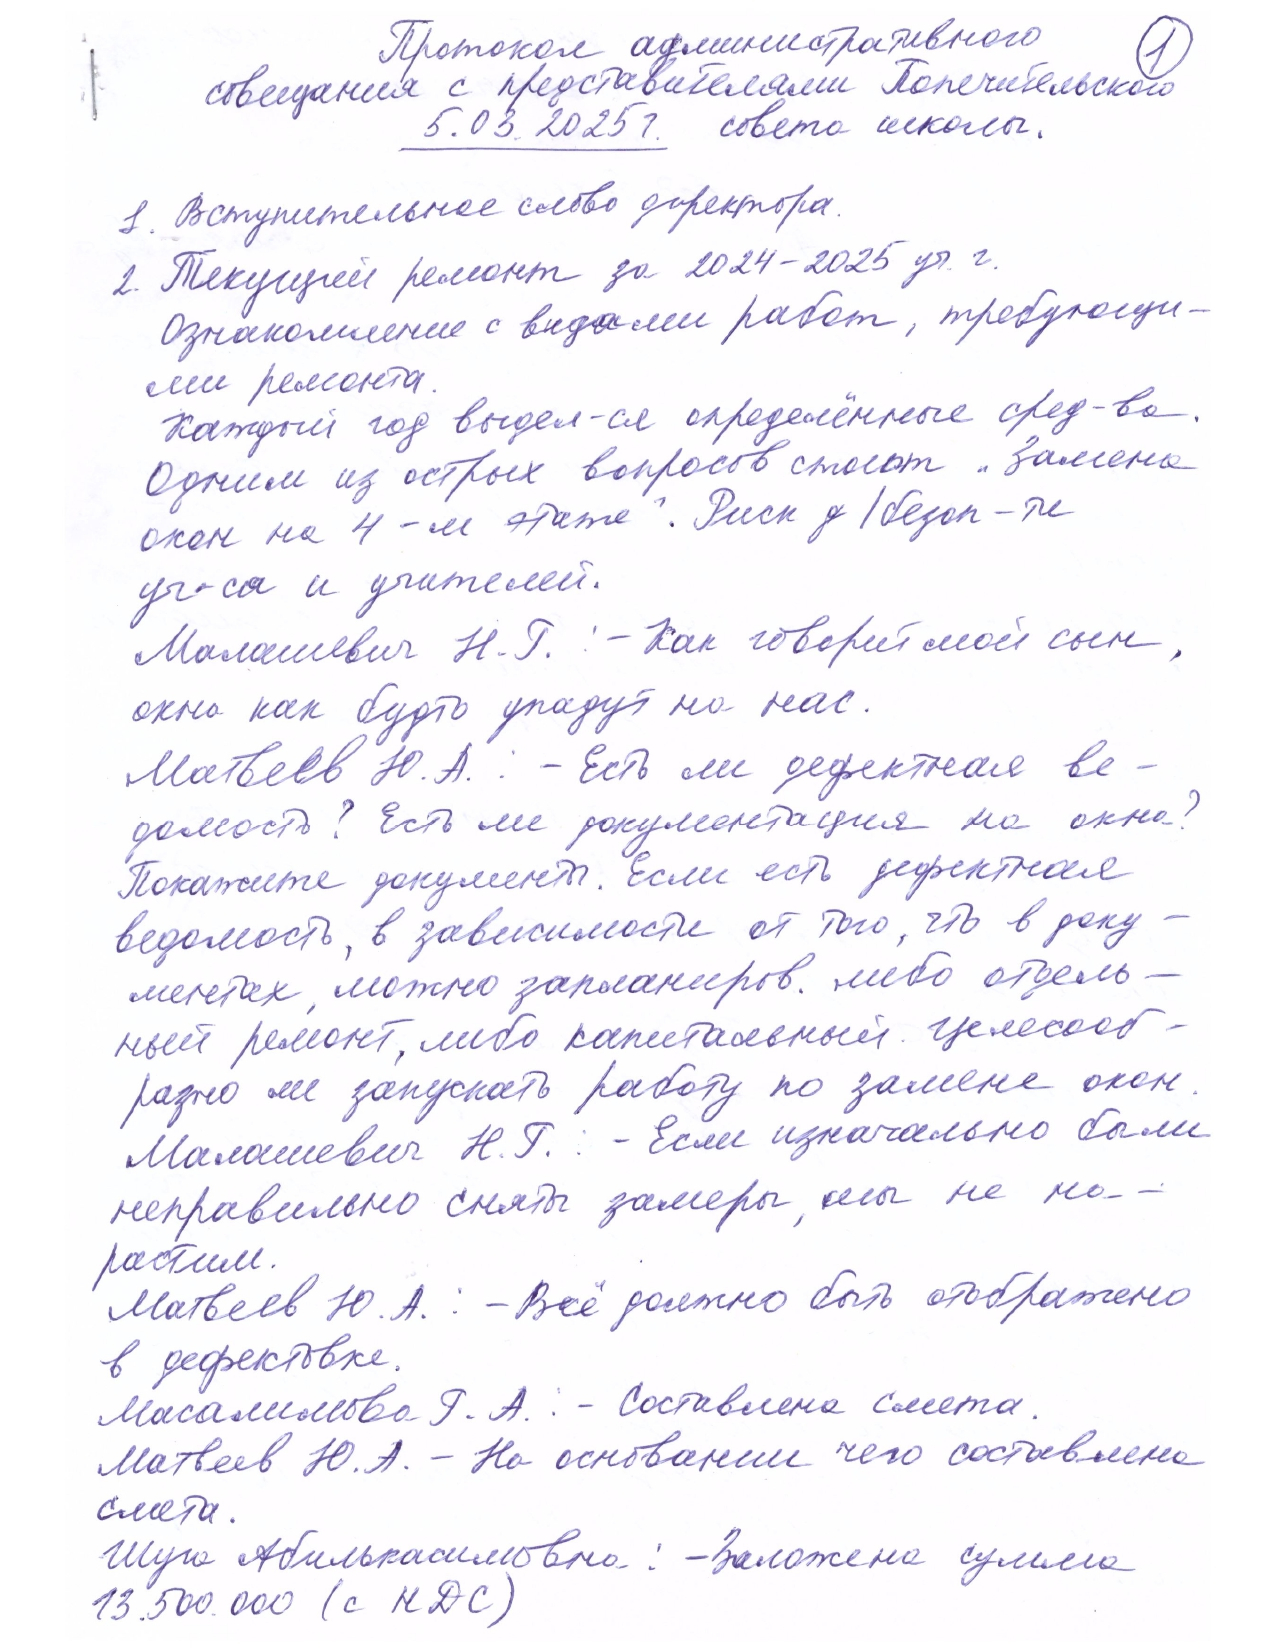 Протокол административного
1
совещания с представителями Попечительского
5.03.2025г. совета школы.
1. Вступительное слово директора.
2. Текущий ремонт за 2024-2025 уч. г.
Ознакомление с видами работ, требующи-
ми ремонта.
Каждый год выдел-ся определённые сред-ва.
Одним из острых вопросов стоит „Замена
окон на 4-м этаже". Риск д/безоп-ти
уч-ся и учителей.
Малашевич Н.Г.: - Как говорит мой сын,
окна как будто упадут на нас.
Матвеев Ю.А.: - Есть ли дефектная ве-
домость? Есть ли документация на окна?
Покажите документы. Если есть дефектная
ведомость, в зависимости от того, что в доку-
ментах, можно запланиров. либо отдель-
ный ремонт, либо капитальный. Целесооб-
разно ли запускать работу по замене окон.
Малашевич Н.Г.: - Если изначально были
неправильно сняты замеры, мы не на-
растим.
Матвеев Ю.А.: - Всё должно быть отображено
в дефектовке.
Масалимова Г.А.: - Составлена смета.
Матвеев Ю.А. - На основании чего составлена
смета.
Шуга Абилькасимовна: - Заложена сумма
13.500.000 (с НДС)